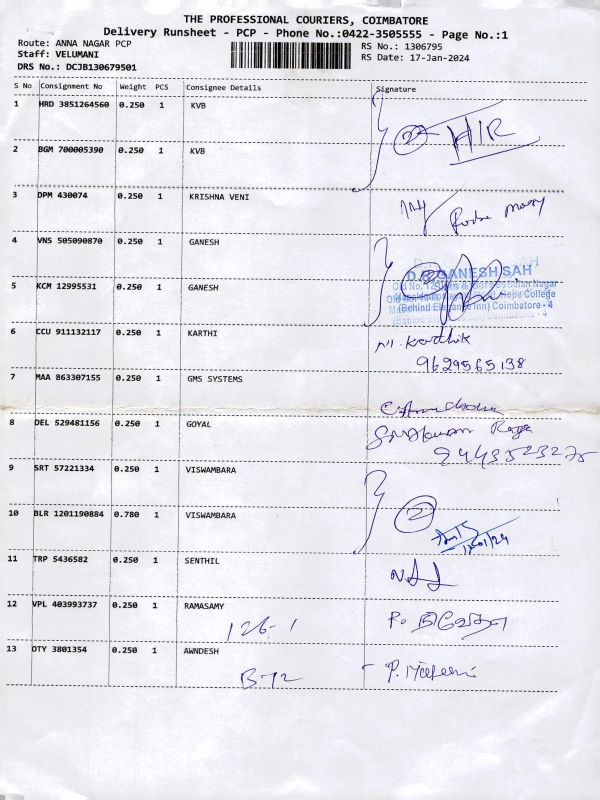 THE PROFESSIONAL COURIERS, COIMBATORE
Delivery Runsheet - PCP - Phone No.:0422-3505555 - Page No.:1
Route: ANNA NAGAR PCP RS No.: 1306795
Staff: VELUMANI RS Date: 17-Jan-2024
DRS No.: DCJB130679501
S No Consignment No Weight PCS Consignee Details Signature
1 HRD 3851264560 0.250 1 KVB
2 BGM 700005390 0.250 1 KVB
3 DPM 430074 0.250 1 KRISHNA VENI
4 VNS 505090870 0.250 1 GANESH
GANESH SAH
5 KCM 12995531 0.250 1 GANESH
Hope College
(Behind Elegance Inn) Coimbatore - 4
6 CCU 911132117 0.250 1 KARTHI
Karthik
9629565138
7 MAA 863307155 0.250 1 GMS SYSTEMS
8 DEL 529481156 0.250 1 GOYAL
9443523275
9 SRT 57221334 0.250 1 VISWAMBARA
10 BLR 1201190884 0.780 1 VISWAMBARA
2
11 TRP 5436582 0.250 1 SENTHIL
12 VPL 403993737 0.250 1 RAMASAMY
126-1
13 OTY 3801354 0.250 1 AWNDESH
B-72